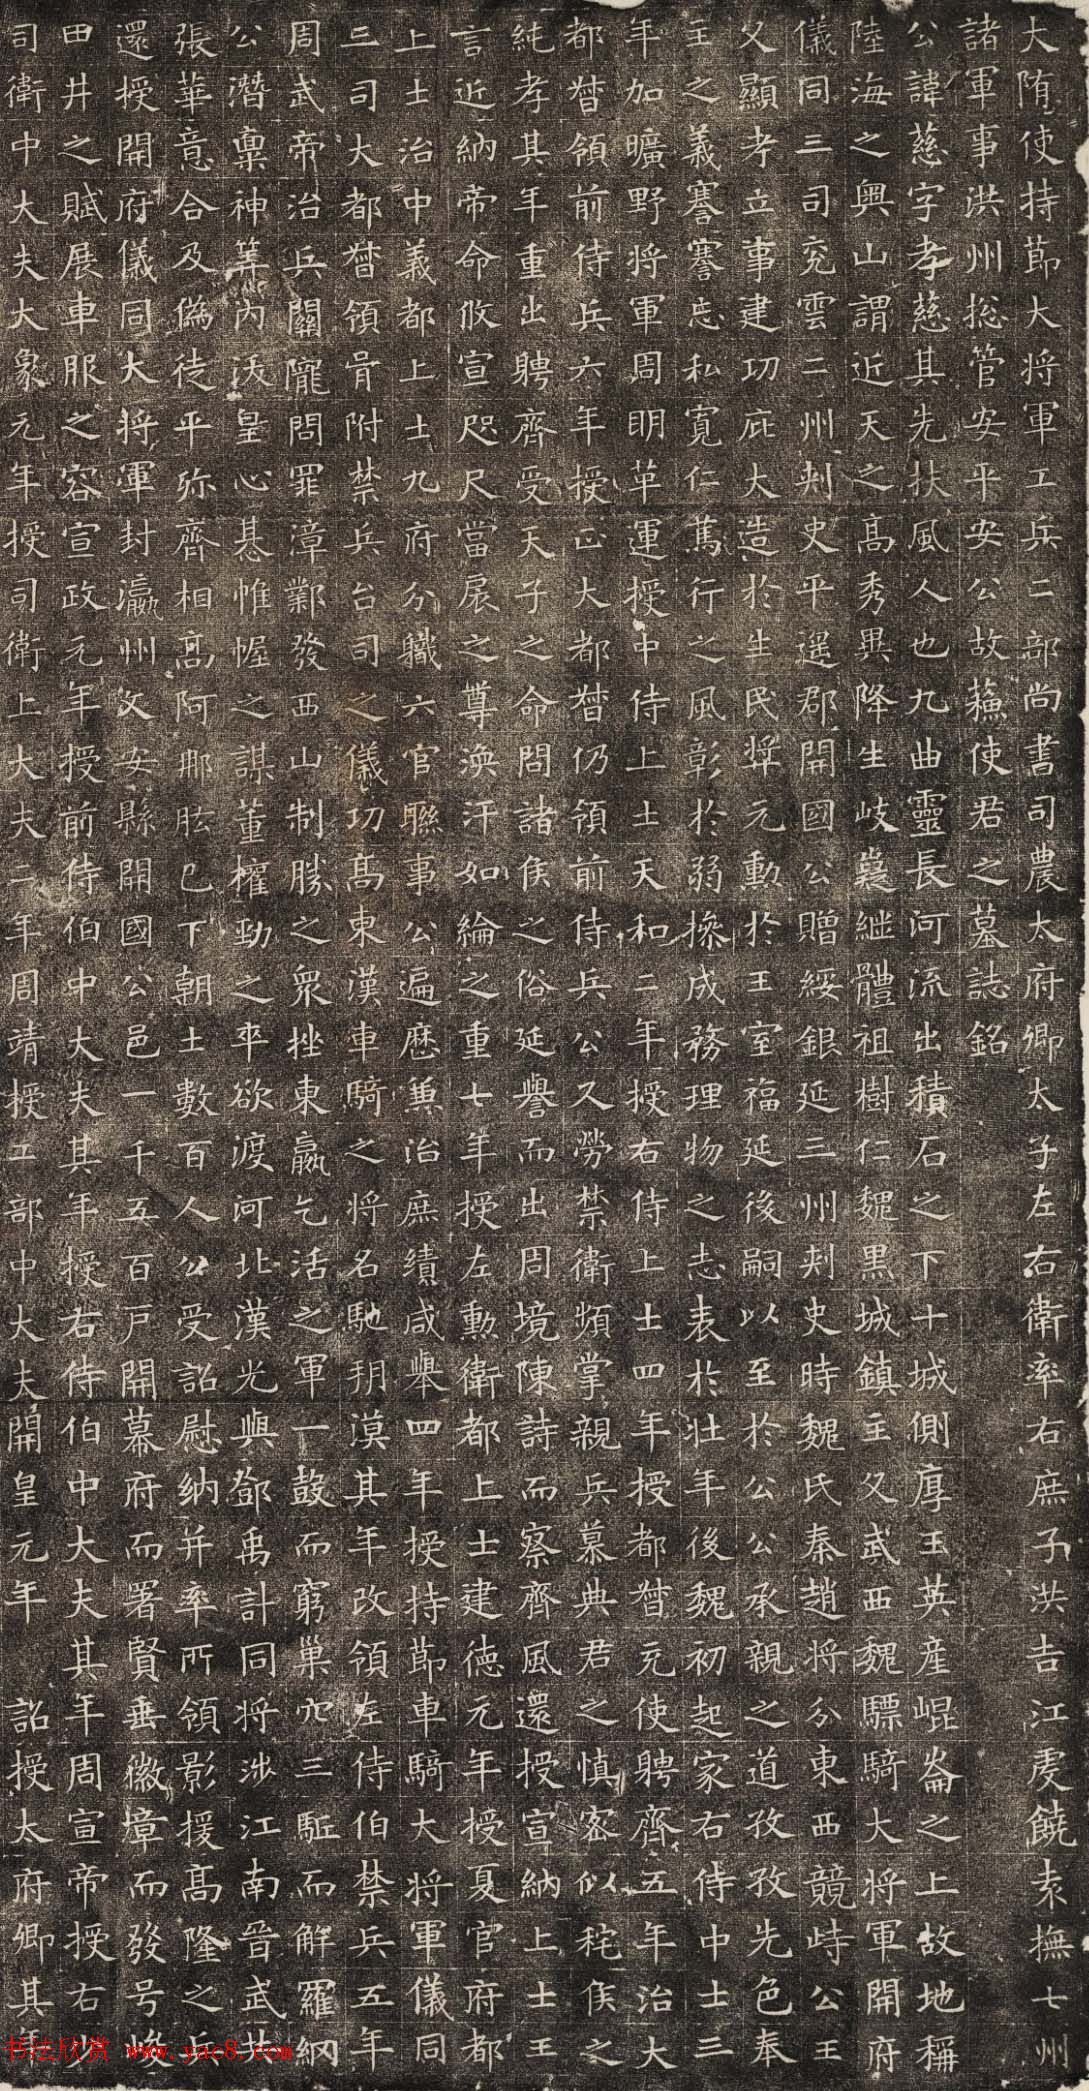 大隋使持節大將軍工兵二部尚書司農太府卿太子左右衛率右庶子洪吉江虔饒袁撫七州
諸軍事洪州揔管安平安公故蘓使君之墓誌銘
公諱慈字孝慈其先扶風人也九曲靈長河流出積石之下十城側厚玉英産崐崙之上故地稱
陸海之奥山謂近天之高秀異降生岐嶷継體祖樹仁魏黑城鎮主父武西魏驃騎大將軍開府
儀同三司兖雲二州刾史平遥郡開國公贈綏銀延三州刾史時魏氏秦趙將分東西競峙公王
父顯考立事建功庇大造於生民奨元勳於王室福延後嗣以至於公公承親之道孜孜先色奉
主之義謇謇忘私寛仁篤行之風彰於弱操成務理物之志表於壮年後魏初起家右侍中士三
年加曠野將軍周明革運授中侍上士天和二年授右侍上士四年授都督充使聘齊五年治大
都督領前侍兵六年授正大都督仍領前侍兵公又勞禁衛頻掌親兵慕典君之慎密似秺侯之
純孝其年重出聘齊受天子之命問諸侯之俗延譽而出周境陳詩而察齊風還授宣納上士王
言近納帝命攸宣咫尺當扆之尊渙汗如綸之重七年授左勳衛都上士建徳元年授夏官府都
上士治中義都上士九府分職六官聯事公遍歷兼治庶績咸舉四年授持節車騎大將軍儀同
三司大都督領胥附禁兵台司之儀功高東漢車騎之將名馳朔漠其年改領左侍伯禁兵五年
周武帝治兵關隴問罪漳鄴發西山制勝之衆挫東羸乞活之軍一鼓而窮巢穴三駈而解羅網
公潛稟神筭内沃皇心基帷幄之謀董權勁之卒欲渡河北漢光與鄧禹計同將涉江南晉武共
張華意合及偽徒平弥齊相高阿那肱已下朝士數百人公受詔慰納并率所領影援高隆之兵
還授開府儀同大將軍封瀛州文安縣開國公邑一千五百戸開幕府而署賢垂徽璋而發号峻
田井之賦展車服之容宣政元年授前侍伯中大夫其年授右侍伯中大夫其年周宣帝授右少
司衛中大夫大象元年授司衛上大夫二年周靖授工部中大夫開皇元年 詔授太府卿其年
书法欣赏 www.yac8.com